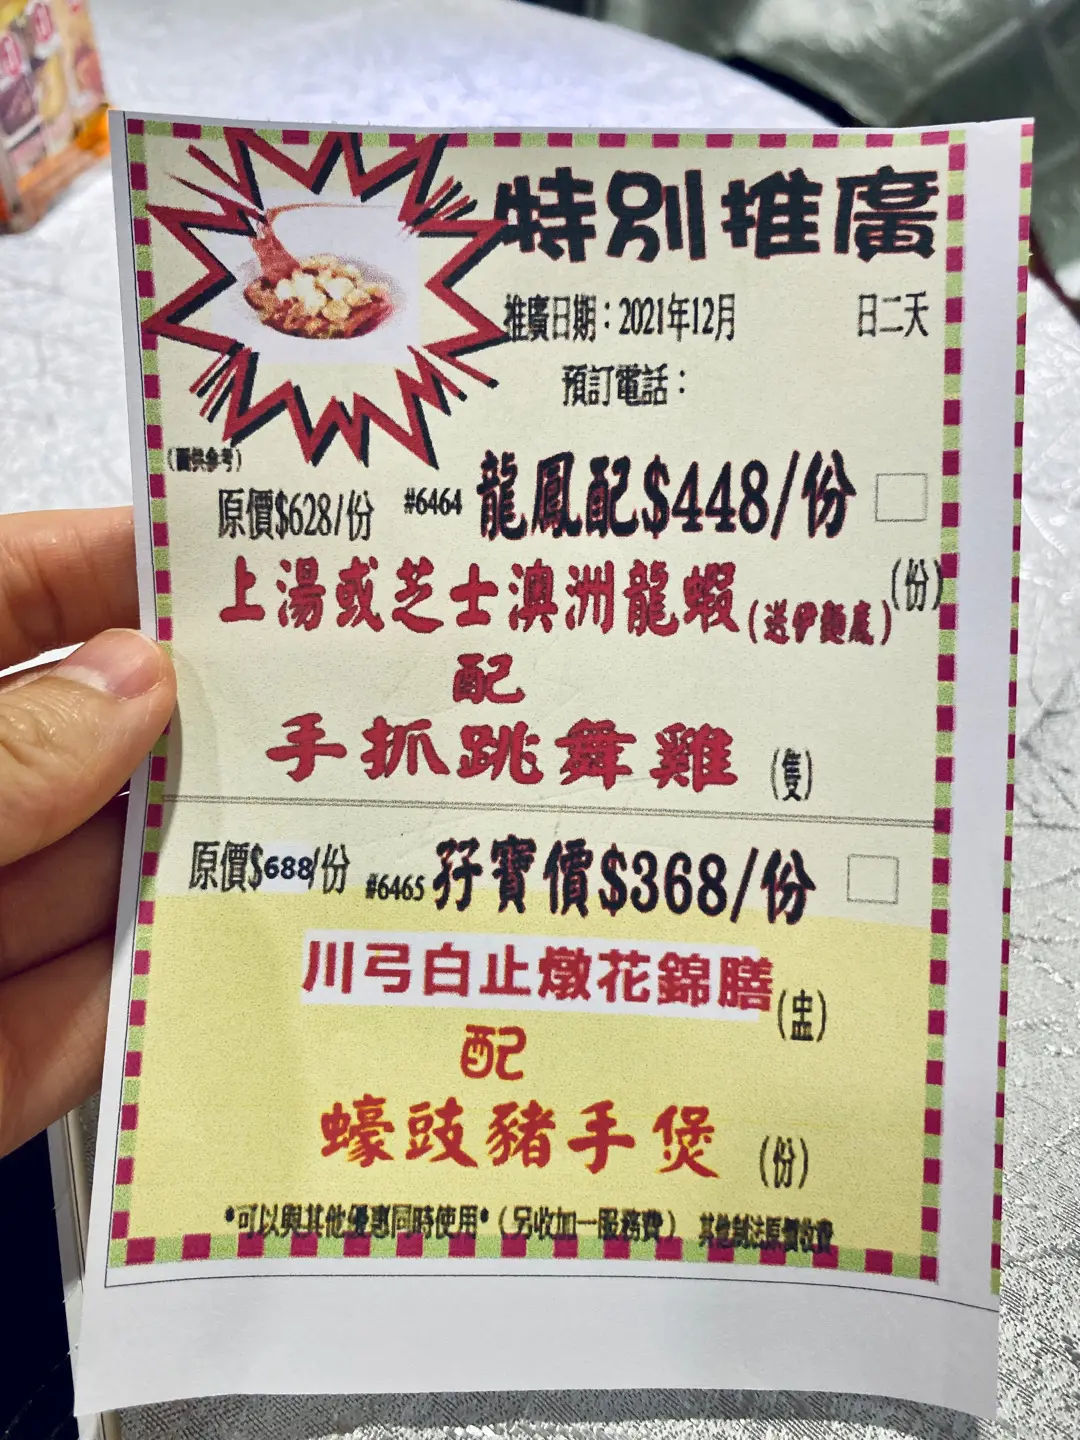 特別推廣
推廣日期：2021年12月 日二天
預訂電話：
(圖供參考)
原價$628/份 #6464 龍鳳配$448/份
上湯或芝士澳洲龍蝦(送伊麵底) (份)
配
手抓跳舞雞 (隻)
原價$688/份 #6465 孖寶價$368/份
川弓白止燉花錦膳 (盅)
配
蠔豉豬手煲 (份)
*可以與其他優惠同時使用* (另收加一服務費) 其他制法原價收費